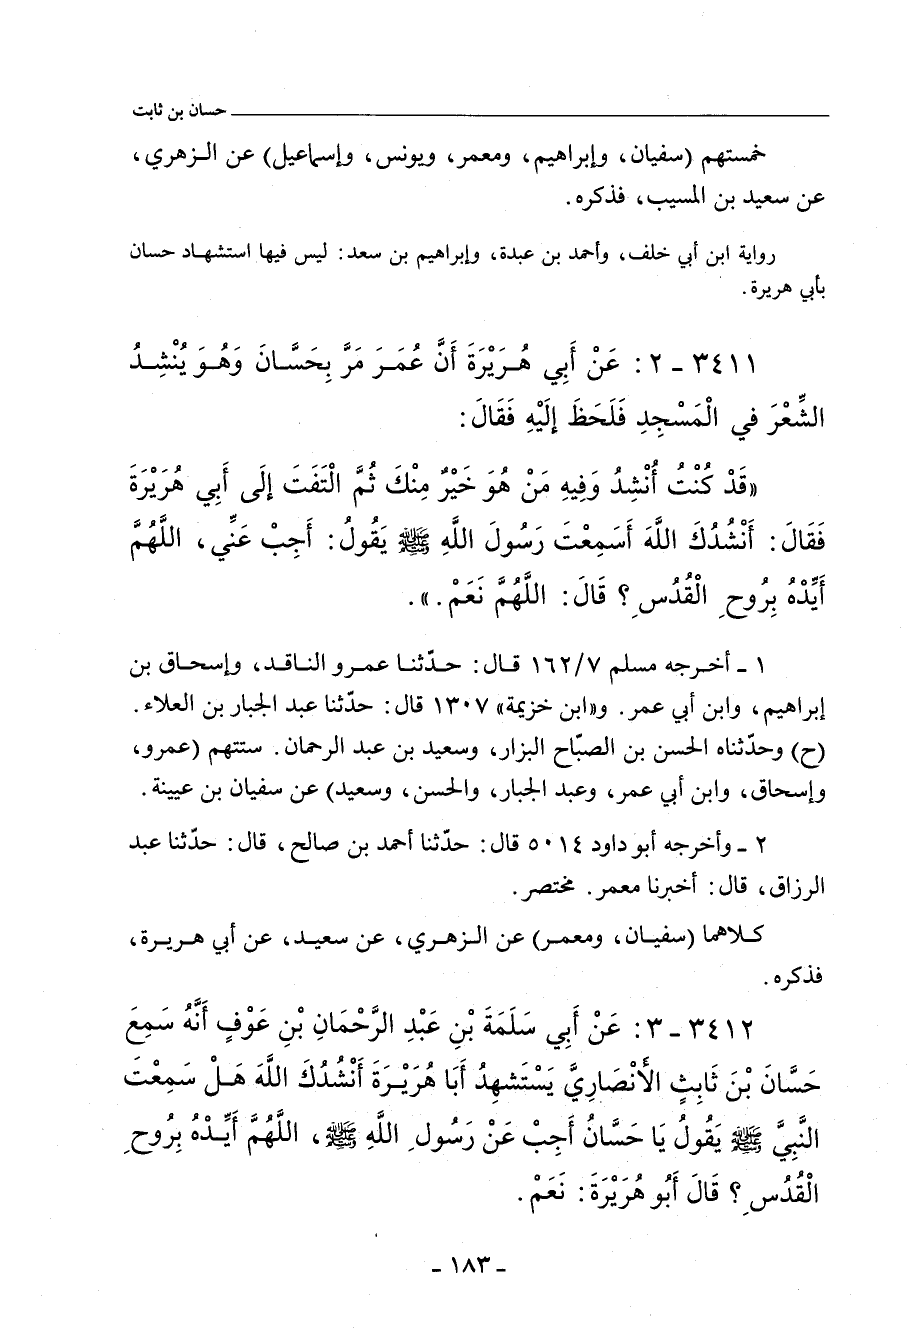 حسان بن ثابت
خمستهم (سفيان، وإبراهيم، ومعمر، ويونس، وإسماعيل) عن الزهري،
عن سعيد بن المسيب، فذكره.
رواية ابن أبي خلف، وأحمد بن عبدة، وإبراهيم بن سعد: ليس فيها استشهاد حسان
بأبي هريرة.
٣٤١١ - ٢: عَنْ أَبِي هُرَيْرَةَ أَنَّ عُمَرَ مَرَّ بِحَسَّانَ وَهُوَ يُنْشِدُ
الشِّعْرَ في الْمَسْجِدِ فَلَحَظَ إِلَيْهِ فَقَالَ:
«قَدْ كُنْتُ أُنْشِدُ وَفِيهِ مَنْ هُوَ خَيْرٌ مِنْكَ ثُمَّ الْتَفَتَ إِلَى أَبِي هُرَيْرَةَ
فَقَالَ: أَنْشُدُكَ اللَّهَ أَسَمِعْتَ رَسُولَ اللَّهِ ﷺ يَقُولُ: أَجِبْ عَنِّي، اللَّهُمَّ
أَيِّدْهُ بِرُوحِ الْقُدُسِ؟ قَالَ: اللَّهُمَّ نَعَمْ.».
١ - أخرجه مسلم ١٦٢/٧ قال: حدّثنا عمرو الناقد، وإسحاق بن
إبراهيم، وابن أبي عمر. و«ابن خزيمة» ١٣٠٧ قال: حدّثنا عبد الجبار بن العلاء.
(ح) وحدّثناه الحسن بن الصبّاح البزار، وسعيد بن عبد الرحمان. ستتهم (عمرو،
وإسحاق، وابن أبي عمر، وعبد الجبار، والحسن، وسعيد) عن سفيان بن عيينة.
٢ - وأخرجه أبو داود ٥٠١٤ قال: حدّثنا أحمد بن صالح، قال: حدّثنا عبد
الرزاق، قال: أخبرنا معمر. مختصر.
كلاهما (سفيان، ومعمر) عن الزهري، عن سعيد، عن أبي هريرة،
فذكره.
٣٤١٢ - ٣: عَنْ أَبِي سَلَمَةَ بْنِ عَبْدِ الرَّحْمَانِ بْنِ عَوْفٍ أَنَّهُ سَمِعَ
حَسَّانَ بْنَ ثَابِتٍ الأَنْصَارِيَّ يَسْتَشهِدُ أَبَا هُرَيْرَةَ أَنْشُدُكَ اللَّهَ هَلْ سَمِعْتَ
النَّبِيَّ ﷺ يَقُولُ يَا حَسَّانُ أَجِبْ عَنْ رَسُولِ اللَّهِ ﷺ، اللَّهُمَّ أَيِّدْهُ بِرُوحِ
الْقُدُسِ؟ قَالَ أَبُو هُرَيْرَةَ: نَعَمْ.
- ١٨٣ -